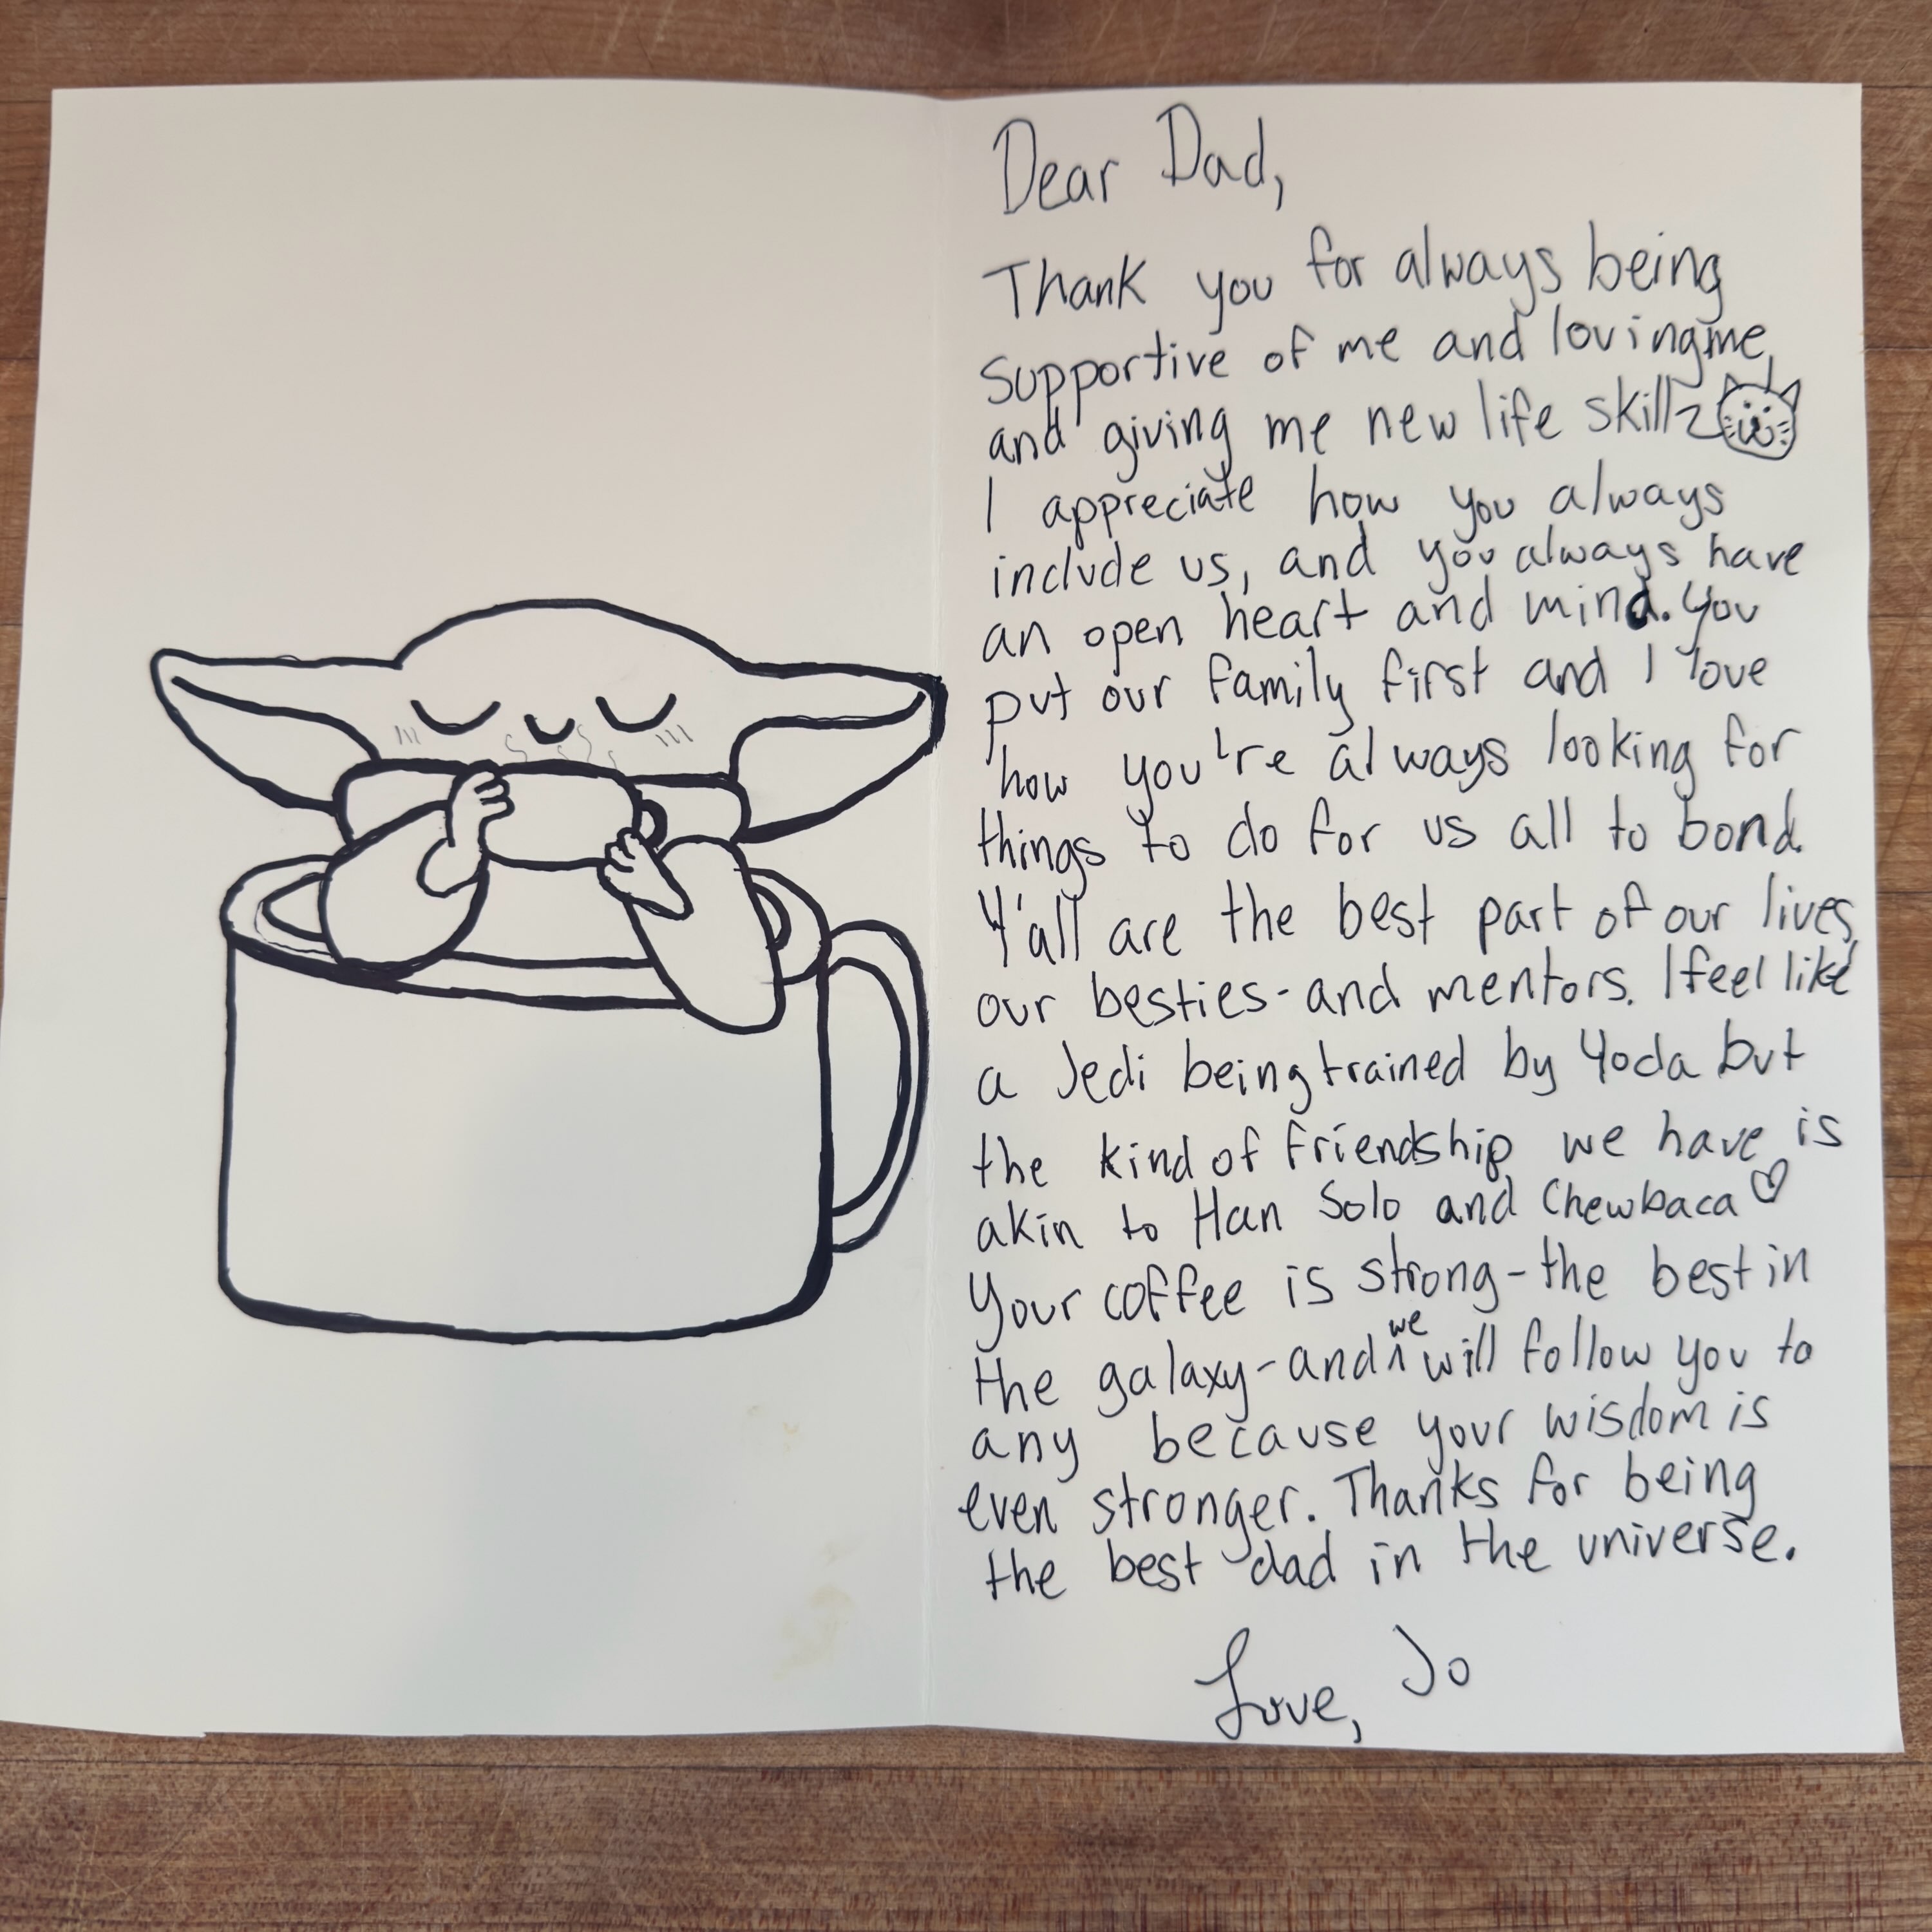 Dear Dad,
Thank you for always being
supportive of me and loving me,
and giving me new life skillz
I appreciate how you always
include us, and you always have
an open heart and mind. You
put our family first and I love
how you're always looking for
things to do for us all to bond.
Y'all are the best part of our lives,
our besties - and mentors. I feel like
a Jedi being trained by Yoda but
the kind of friendship we have is
akin to Han Solo and Chewbaca
Your coffee is strong - the best in
the galaxy - and we will follow you to
any because your wisdom is
even stronger. Thanks for being
the best dad in the universe.
Love, Jo